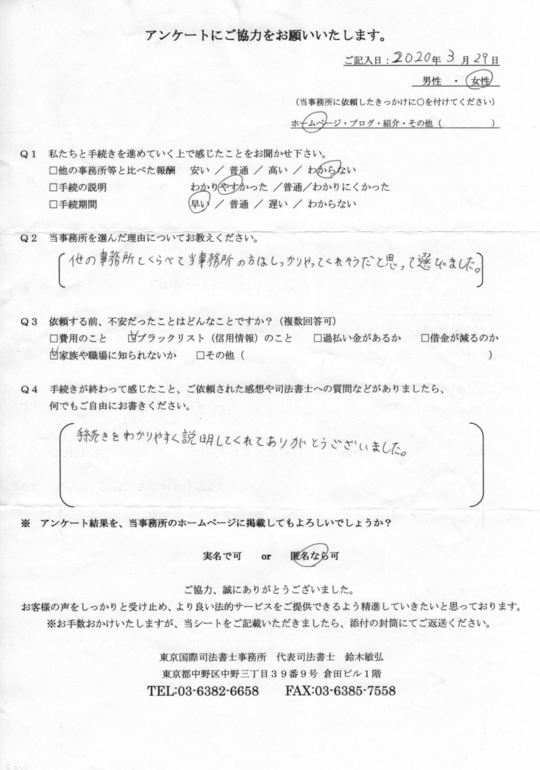 アンケートにご協力をお願いいたします。
ご記入日：2020年 3 月 29日
男性 ・ 女性
（当事務所に依頼したきっかけに○を付けてください）
ホームページ・ブログ・紹介・その他（　　　　　　）
Q１ 私たちと手続きを進めていく上で感じたことをお聞かせ下さい。
□他の事務所等と比べた報酬 安い ／ 普通 ／ 高い ／ わからない
□手続の説明 わかりやすかった ／普通／わかりにくかった
□手続期間 早い ／ 普通 ／ 遅い ／ わからない
Q２ 当事務所を選んだ理由についてお教えください。
他の事務所とくらべて当事務所の方はしっかりやってくれそうだと思って選びました。
Q３ 依頼する前、不安だったことはどんなことですか？（複数回答可）
□費用のこと ☑ブラックリスト（信用情報）のこと □過払い金があるか □借金が減るのか
☑家族や職場に知られないか □その他（　　　　　　）
Q４ 手続きが終わって感じたこと、ご依頼された感想や司法書士への質問などがありましたら、
何でもご自由にお書きください。
手続きをわかりやすく説明してくれてありがとうございました。
※ アンケート結果を、当事務所のホームページに掲載してもよろしいでしょうか？
実名で可 or 匿名なら可
ご協力、誠にありがとうございました。
お客様の声をしっかりと受け止め、より良い法的サービスをご提供できるよう精進していきたいと思っております。
※お手数おかけいたしますが、当シートをご記載いただきましたら、添付の封筒にてご返送ください。
東京国際司法書士事務所 代表司法書士 鈴木敏弘
東京都中野区中野三丁目３９番９号 倉田ビル１階
TEL:03-6382-6658 FAX:03-6385-7558